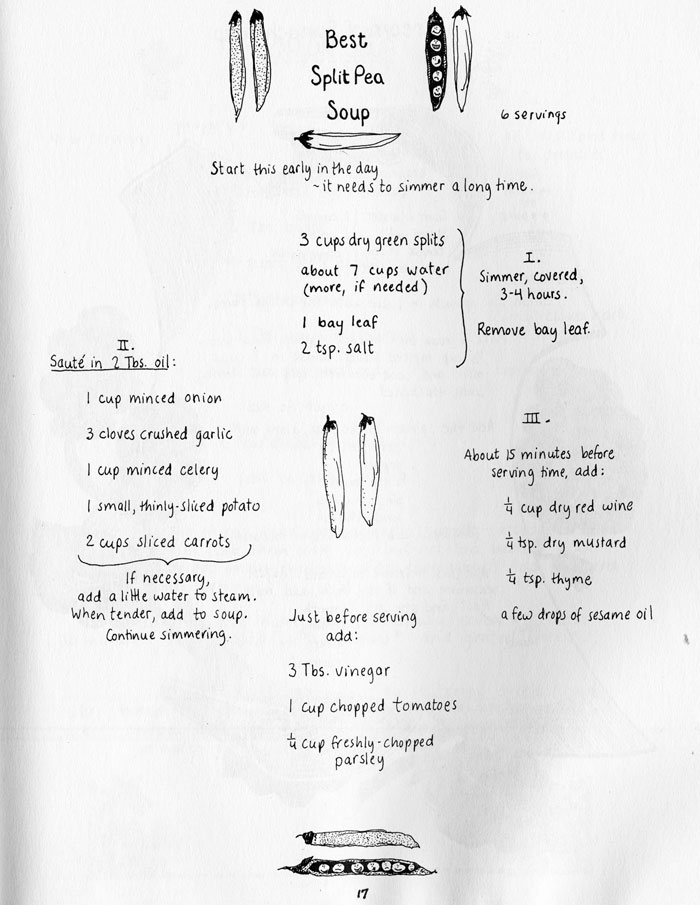 Best
Split Pea
Soup
6 servings
Start this early in the day
~it needs to simmer a long time.
3 cups dry green splits
about 7 cups water
(more, if needed)
1 bay leaf
2 tsp. salt
I.
Simmer, covered,
3-4 hours.
Remove bay leaf.
II.
Sauté in 2 Tbs. oil:
1 cup minced onion
3 cloves crushed garlic
1 cup minced celery
1 small, thinly-sliced potato
2 cups sliced carrots
If necessary,
add a little water to steam.
When tender, add to soup.
Continue simmering.
III.
About 15 minutes before
serving time, add:
1/4 cup dry red wine
1/4 tsp. dry mustard
1/4 tsp. thyme
a few drops of sesame oil
Just before serving
add:
3 Tbs. vinegar
1 cup chopped tomatoes
1/4 cup freshly-chopped
parsley
17